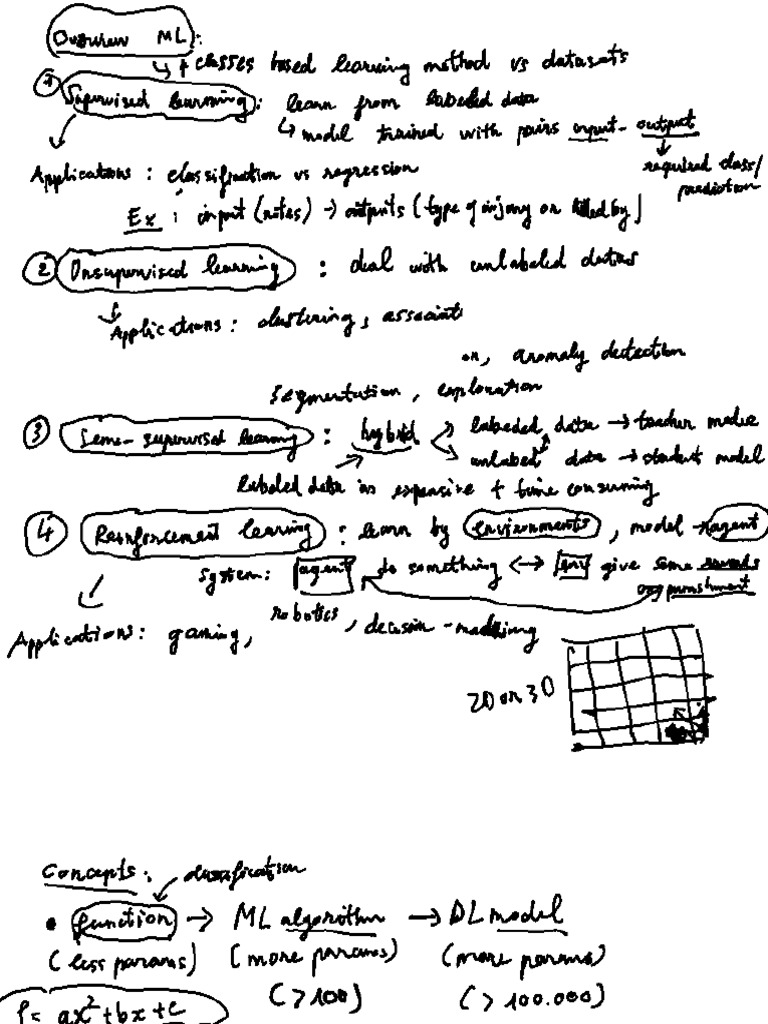 Overview ML:
4 classes based learning method vs datasets
① Supervised learning: learn from labeled data
↳ model trained with pairs input - output
required class/
prediction
Applications: classifiction vs regression
Ex: input (notes) → outputs (type of injury or killed by)
② Unsupervised learning: deal with unlabeled datas
Applications: clustering, associati
on, anomaly detection
segmentation, exploration
③ Seme-supervised learning: hybrid
labeded data → teacher model
unlabed data → student model
labeled data is expensive + time consuming
④ Reinforcement learning: learn by environments, model → agent
System: agent do something ↔ env give some rewards
or punishment
Applications: gaming, robotics, decision-making
2D or 3D
Concepts: classification
• function → ML algorithm → DL model
(less params) (more params) (more params)
(>100) (>100.000)
f = ax²+bx+c